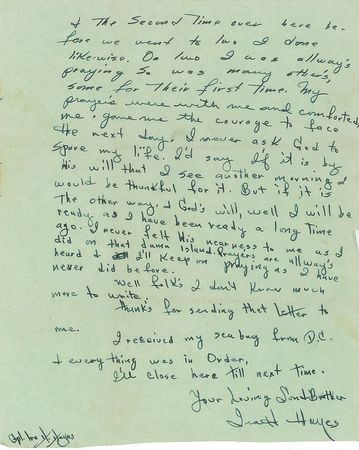 & The Second Time over here be-
fore we went to Iwo I done
likewise. On Iwo I was allways
praying so was many others,
some for Their first Time. My
prayers were with me and comforted
me & gave me the courage to face
the next day. I never ask God to
spare my life. I'd say If it is by
His will that I see another morning I
would be thankful for it. But if it is
The other way & God's will, well I will be
ready as I have been ready a long Time
ago. I never felt His nearness to me as I
did on that damn Island. Prayers are allways
heard & I'll Keep on praying as I have
never did before.
Well folk's I don't know much
more to write,
Thanks for sending that letter to
me.
I received my seabag from D.C.
& everything was in Order,
I'll close here till next time.
Your Loving Son & Brother
Ira H Hayes
Cpl. Ira H. Hayes